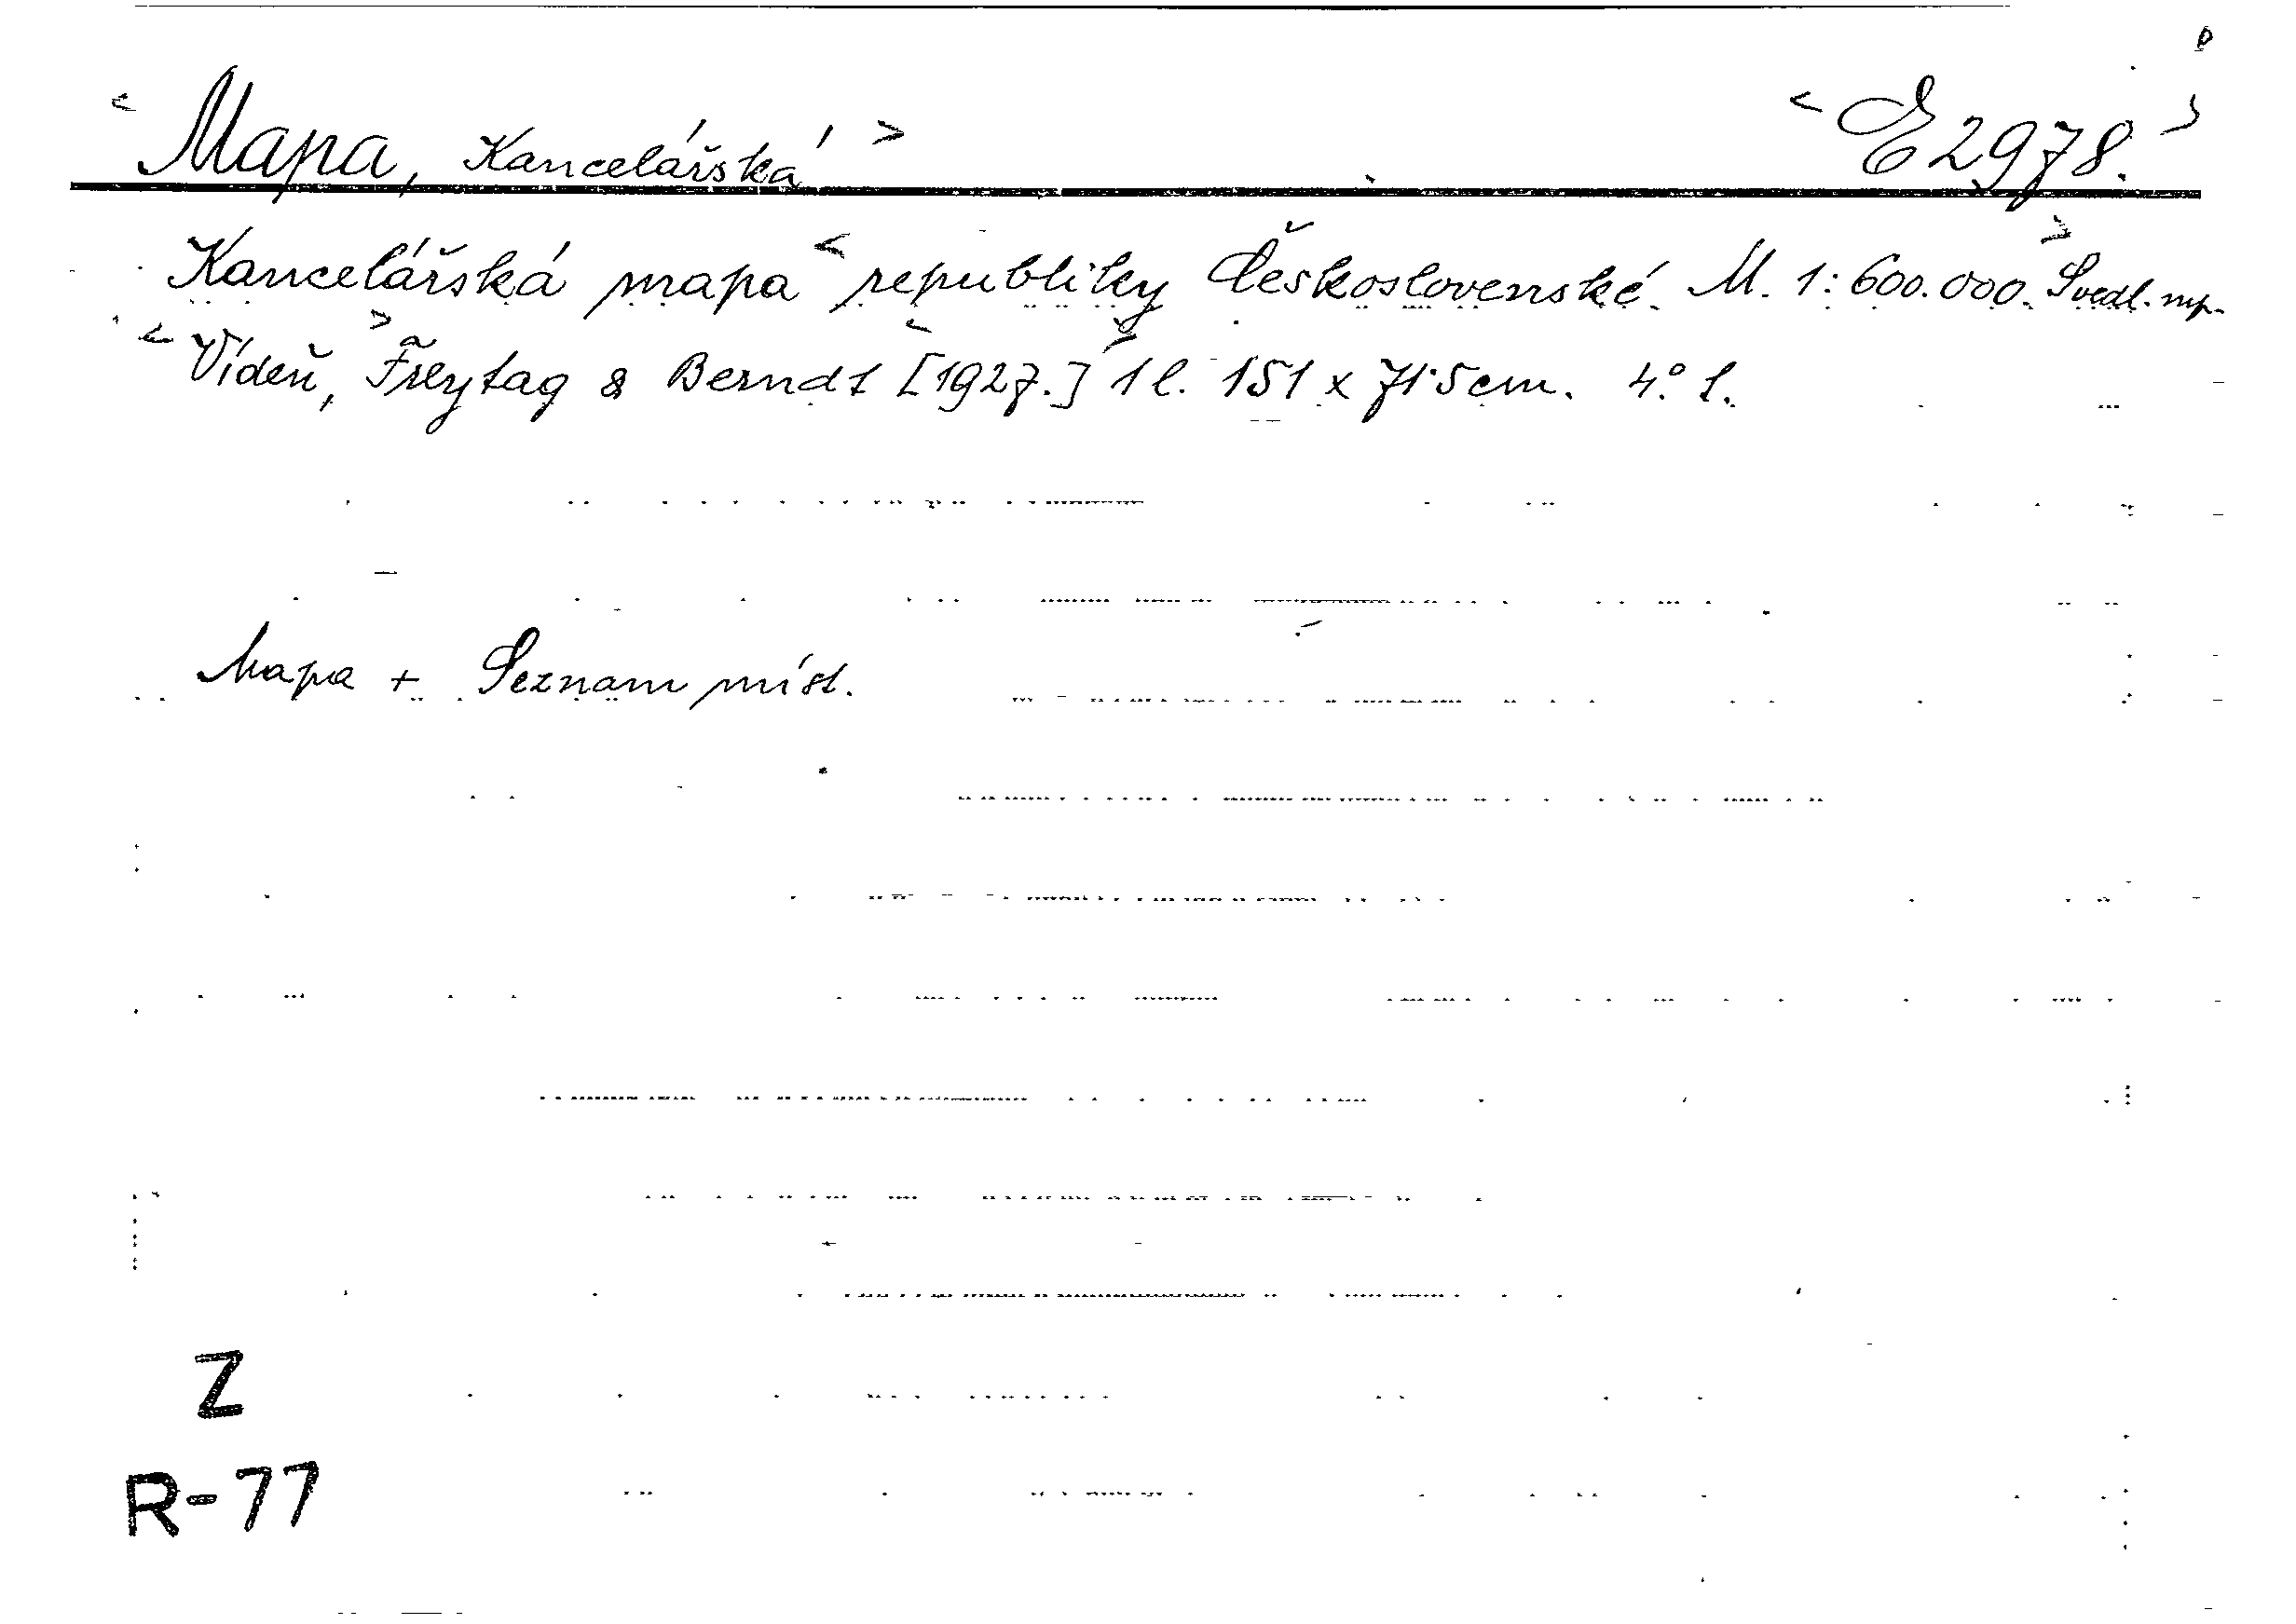 <Mapa, Kancelářská> <E 2978.>
Kancelářská mapa <republiky Československé. M. 1:600.000.> 5 vedl. mp.
<Vídeň,> Freytag & Berndt <[1927.]> 1 l. 151 x 71·5 cm. 4.° l.
Mapa + Seznam míst.
Z
R-77